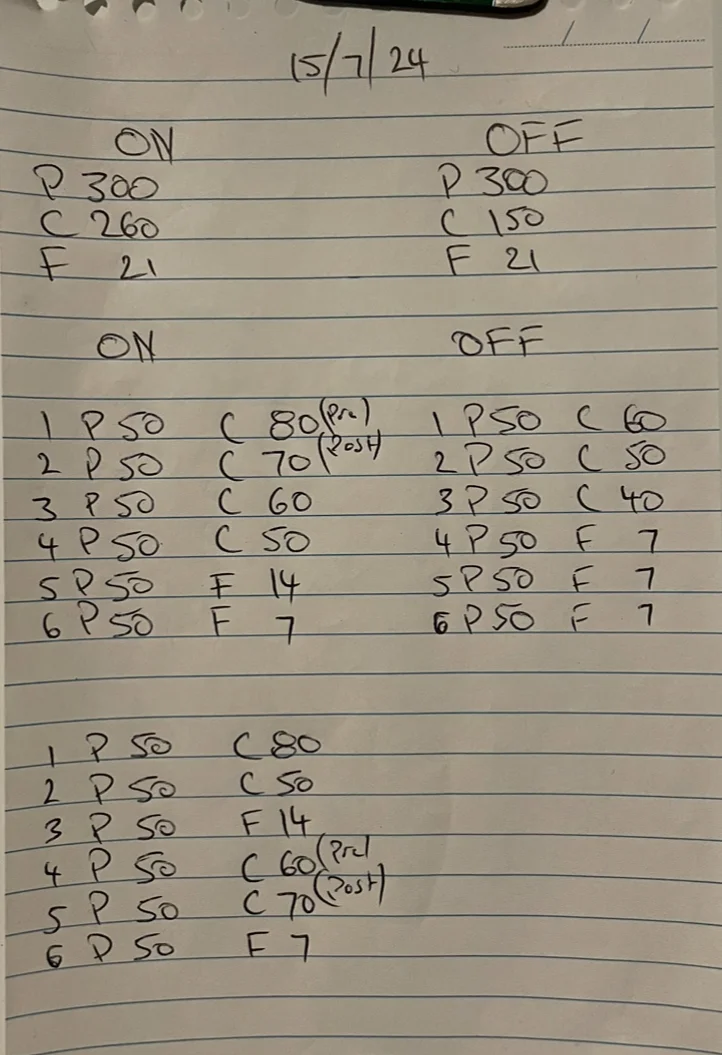 15/7/24
ON OFF
P 300 P 300
C 260 C 150
F 21 F 21
ON OFF
1 P 50 C 80 (Pre) 1 P 50 C 60
2 P 50 C 70 (Post) 2 P 50 C 50
3 P 50 C 60 3 P 50 C 40
4 P 50 C 50 4 P 50 F 7
5 P 50 F 14 5 P 50 F 7
6 P 50 F 7 6 P 50 F 7
1 P 50 C 80
2 P 50 C 50
3 P 50 F 14
4 P 50 C 60 (Pre)
5 P 50 C 70 (Post)
6 P 50 F 7